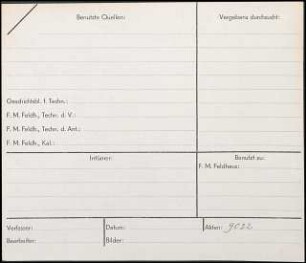 Benutzte Quellen:
Vergebens durchsucht:
Geschichtsbl. f. Techn.:
F. M. Feldh., Techn. d. V.:
F. M. Feldh., Techn. d. Ant.:
F. M. Feldh., Kal.:
Irrtümer:
Benutzt zu:
F. M. Feldhaus:
Verfasser:
Datum:
Akten: 9022
Bearbeiter:
Bilder: